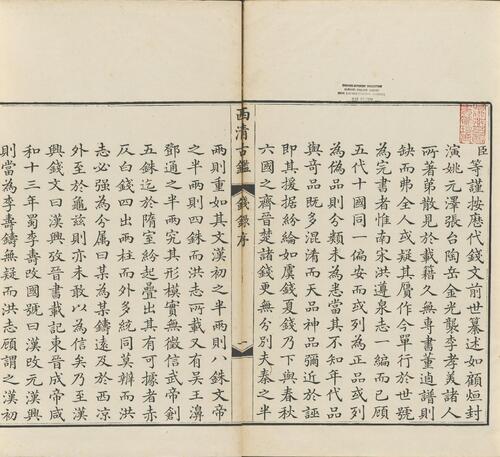 臣等謹按歷代錢文前世纂述如顧烜封
演姚元澤張台陶岳金光襲李孝美諸人
所著第散見於載籍久無專書董逌譜則
缺而弗全人或疑其贋作今單行於世號
為完書者惟南宋洪遵泉志一編而已顧
五代十國同一偏安而或列為正品或列
為偽品則分類未為悉當其不知年代品
與奇品既多混淆而天品神品彌近於誣
即其援據紛綸如虞錢夏錢乃下與春秋
六國之齊莒楚諸錢更無分別夫秦之半
西清古鑑
錢錄序
一
兩則重如其文漢初之半兩則八銖文帝
之半兩則四銖而洪志所載又有吳王濞
鄧通之半兩究其形模實無徵信武帝創
五銖迄於隋室紛起疊出其有可據者赤
仄白錢四出兩柱而外多統同莫辨而洪
志必強為分屬曰某為某鑄遠及於西涼
外至於龜兹則亦未敢以為信矣乃至漢
興錢文曰漢興攷晉書載記東晉成帝咸
和十三年蜀李壽改國號曰漢改元漢興
則當為李壽鑄無疑而洪志顧謂之漢初